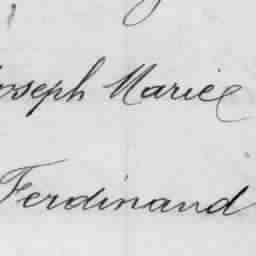 oseph Marie
Ferdinand